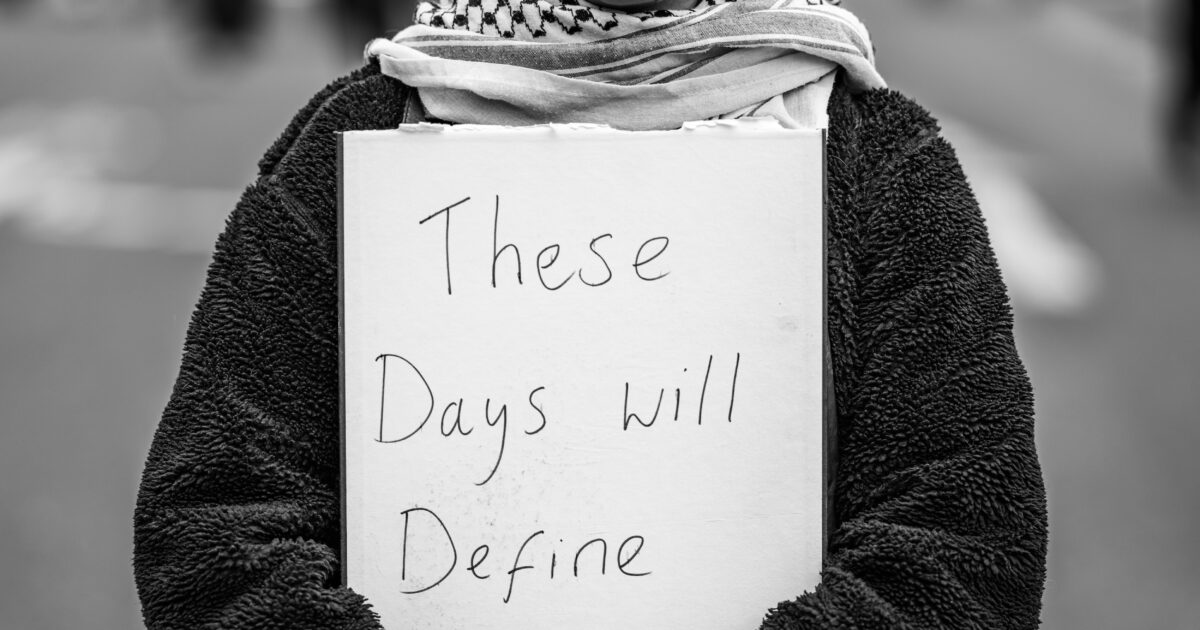 These
Days will
Define